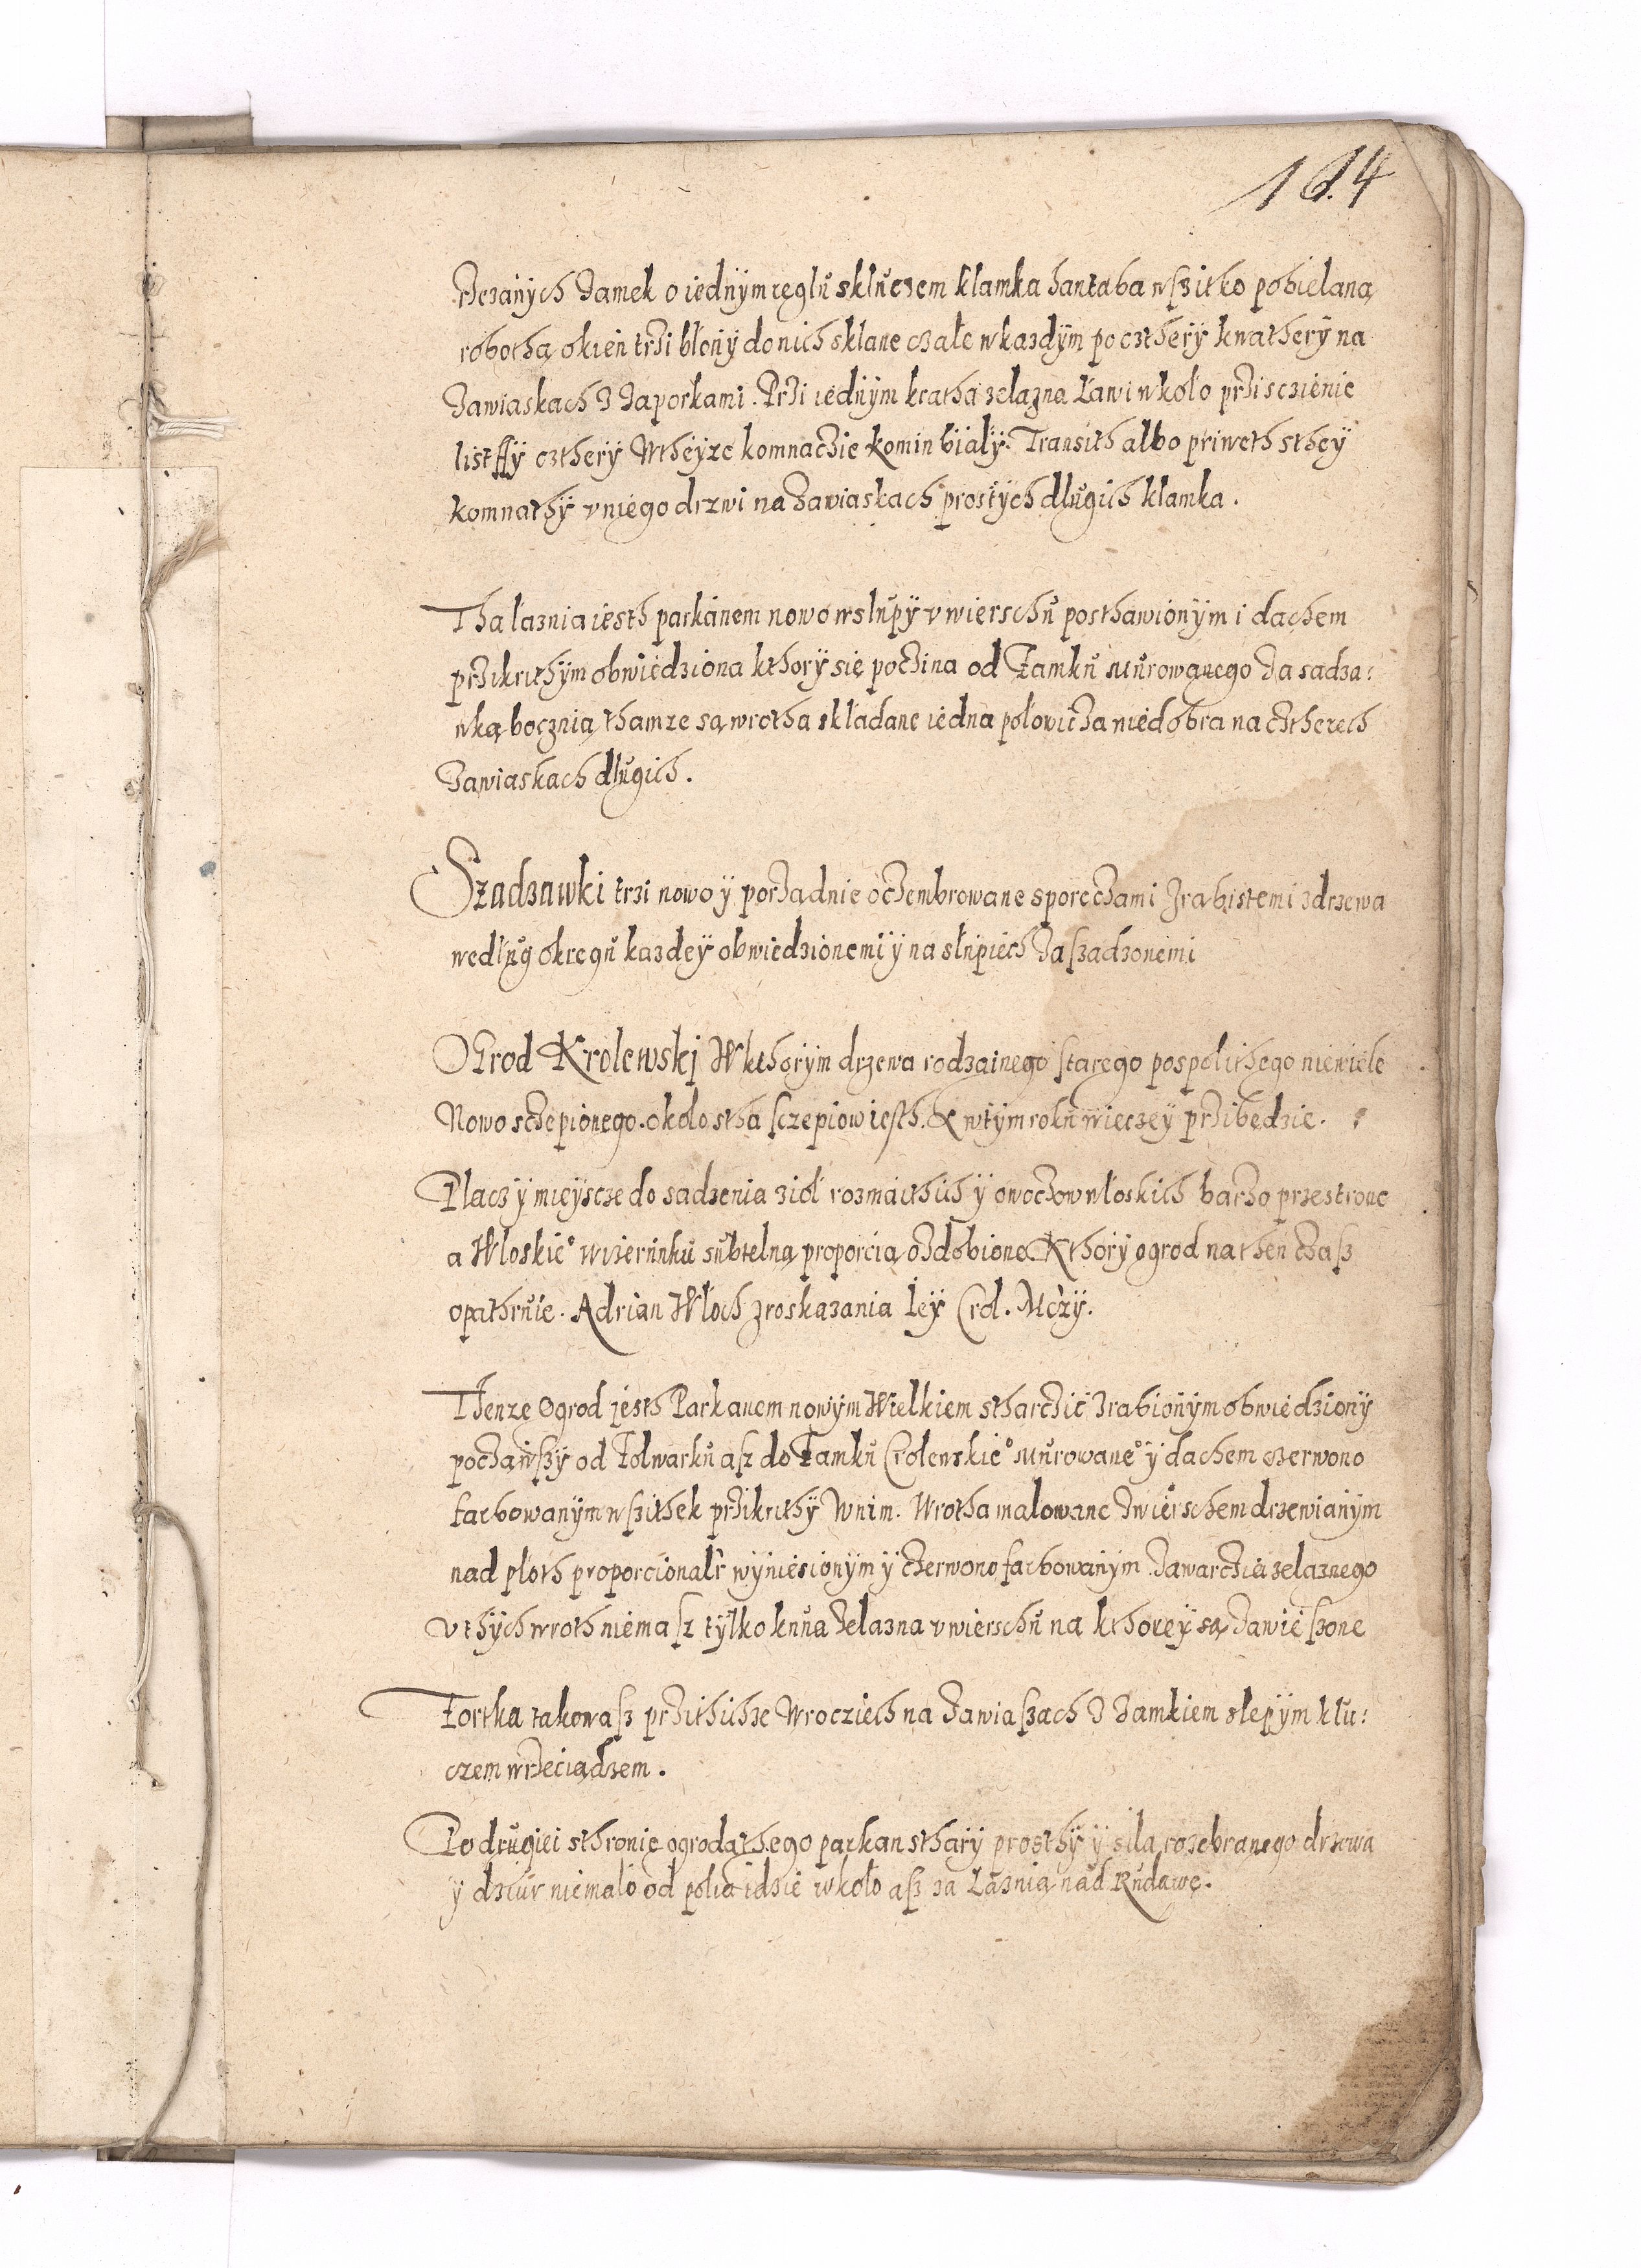 164
rzezanÿch Zamek o iednÿm reglu skluczem klamka hantaba wszitko pobielaną
robothą okien trzi błonÿ do nich sklane czałe w kazdÿm po czthery kwatherÿ na
Zawiaskach Z Zaporkami. Przi iednÿm kratha zelazna Ławi wkoło prziscziėnie
listffÿ czthery Wtheÿze komnaczie Komin biały. Transith albo priweth sthey
komnathÿ v niego drzwi na Zawiaskach prostÿch długich klamka.
Tha łaznia iesth parkanem nowo w słupÿ v wierschu posthawionÿm i dachem
przikrithÿm obwiedziona kthorÿ się poczina od Zamku murowanego Za sadza:
wką bocznią thamze są wrotha składane iedna połowicza niedobra na cztherech
Zawiaskach długich.
Szadzawki trzi nowo ÿ porządnie oczembrowane sporęczami Zrabistemi z drzewa
wedlug okręgu kazdeÿ obwiedzionemi ÿ na słupiech Zaszadzonemi
OGrod Krolewski Wkthorÿm drzewa rodzainego starego pospolithego niewiele
Nowo sczepionego. około stha sczepiow iesth. & wtÿm roku wieczeÿ przibędzie.
Placz ÿ mieÿscze do sadzenia zioł rozmaithich ÿ owoczow włoskich barzo przestrone
a Włoskie° wizerunku subtelną proporcią ozdobione Kthorÿ ogrod na then czasz
opathruie. Adrian Włoch z roskazania Ieÿ Crol. Mczÿ.
THenze Ogrod jesth Parkanem nowÿm Wielkiem stharczic Zrabionÿm obwiedzionÿ
począwszÿ od Folwarku asz do Zamku Crolewskie° murowane° ÿ dachem czerwono
farbowanÿm wszithek przikrithÿ Wnim. Wrotha malowane Zwierschem drzewianÿm
nad płoth proporcionalr wÿniesionÿm ÿ czerwono farbowanÿm. Zawarczia zelaznego
v thÿch wroth niemasz tÿlko kuna Zelazna v wierschu na kthoreÿ są Zawieszone
Fortka takowasz przithichze Wrocziech na Zawiaszach Z Zamkiem slepÿm klu:
czem wrzeciądzem.
Po drugiei sthronie ogroda thego parkan sthary prosthÿ ÿ siła rozebranego drzewa
ÿ dziur niemało od polia idzie wkoło asz za Łaznią nad Rudawę.